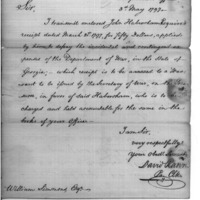 Sir,
3d May 1792.
I transmit enclosed John Habersham Esquire's
receipt dated March 1st 1792, for fifty Dollars, applied
by him to defray the incidental and contingent ex
pences of the Department of War, in the State of
Georgia; which receipt is to be annexed to a War
rant to be issued by the Secretary of War, in
favor of said Habersham, who is to be
charged and held accountable for the same in the
books of your Office.
I am Sir,
very respectfully
Your obedt Servant
David
William Simmons Esqr